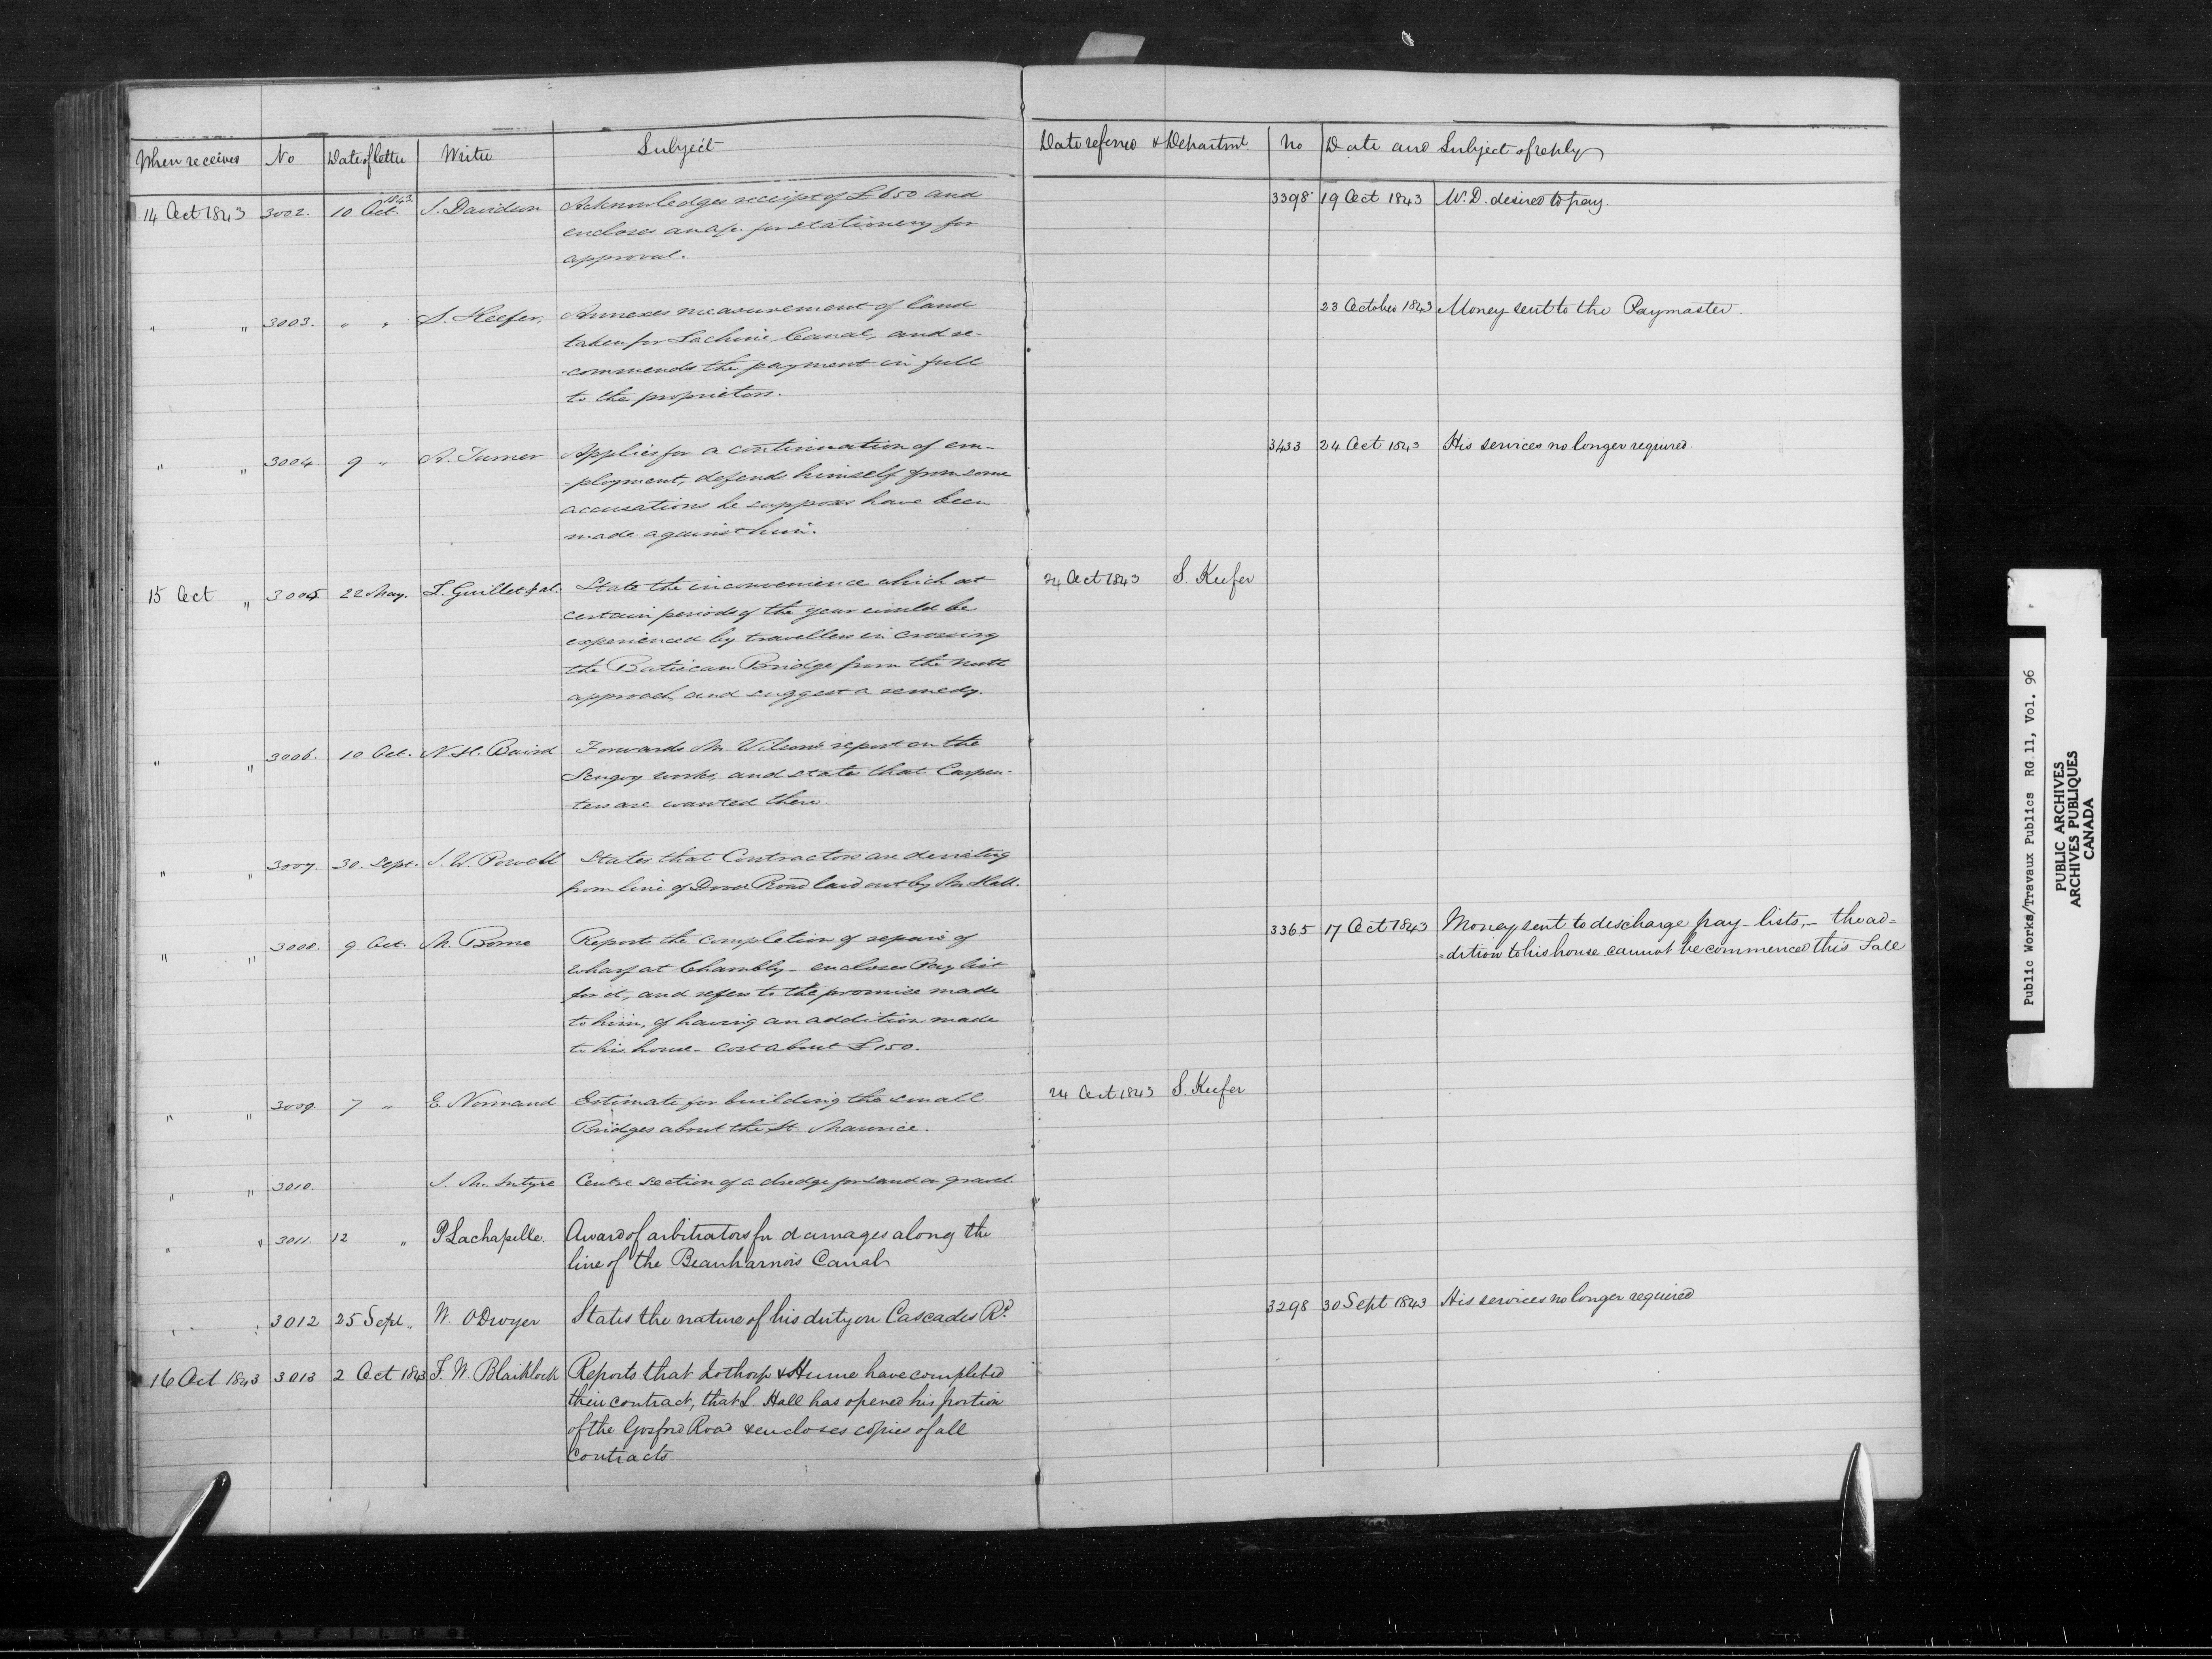 When received No Date of letter Writer Subject Date referred & Departmt. No Date and Subject of reply
14 Oct 1843 3002. 10 Oct. 1843 J. Davidson Acknowledges receipt of £650 and 3398 19 Oct 1843 W.D. desired to pay.
encloses an a/c. for stationery for
approval.
" " 3003. " " S. Keefer, Annexes measurement of land 23 October 1843 Money sent to the Paymaster.
taken for Lachine Canal, and re-
-commends the payment in full
to the proprietors.
" " 3004. 9 " A. Turner Applies for a continuation of em- 3433 24 Oct 1843 His services no longer required.
-ployment, defends himself from some
accusations he supposes have been
made against him.
15 Oct " 3005 22 May. L. Guillet & al. State the inconvenience which at 24 Oct 1843 S. Keefer
certain periods of the year would be
experienced by travellers in crossing
the Batiscan Bridge from the north
approach, and suggest a remedy.
" " 3006. 10 Oct. N.H. Baird Forwards Mr. Wilson's report on the
Scugog works, and states that Carpen-
ters are wanted there.
" " 3007. 30. Sept. J. W. Powell States that Contractors are deviating
from line of Dover Road laid out by Mr. Hall.
" " 3008. 9 Oct. M. Reports the completion of repairs of 3365 17 Oct 1843 Money sent to discharge pay-lists, - the ad=
wharf at Chambly - encloses Pay list =dition to his house cannot be commenced this Fall
for it, and refers to the promise made
to him, of having an addition made
to his house - cost about £150.
" " 3009. 7 " E. Normand Estimate for building the small 24 Oct 1843 S. Keefer
Bridges about the St. Maurice.
" " 3010. J. McIntyre Centre section of a dredge for sand or gravel.
" " 3011. 12 " P Lachapelle. Award of arbitrators for damages along the
line of the Beauharnois Canal
" " 3012 25 Sept. " W. ODwyer States the nature of his duty on Cascades Rd. 3298 30 Sept 1843 His services no longer required
16 Oct 1843 3013 2 Oct 1843 F. W. Blaiklock Reports that Lothrop & Hume have completed
their contract, that L. Hall has opened his portion
of the Gosford Road & encloses copies of all
Contracts
Public Works/Travaux Publics RG 11, Vol. 96
PUBLIC ARCHIVES
ARCHIVES PUBLIQUES
CANADA